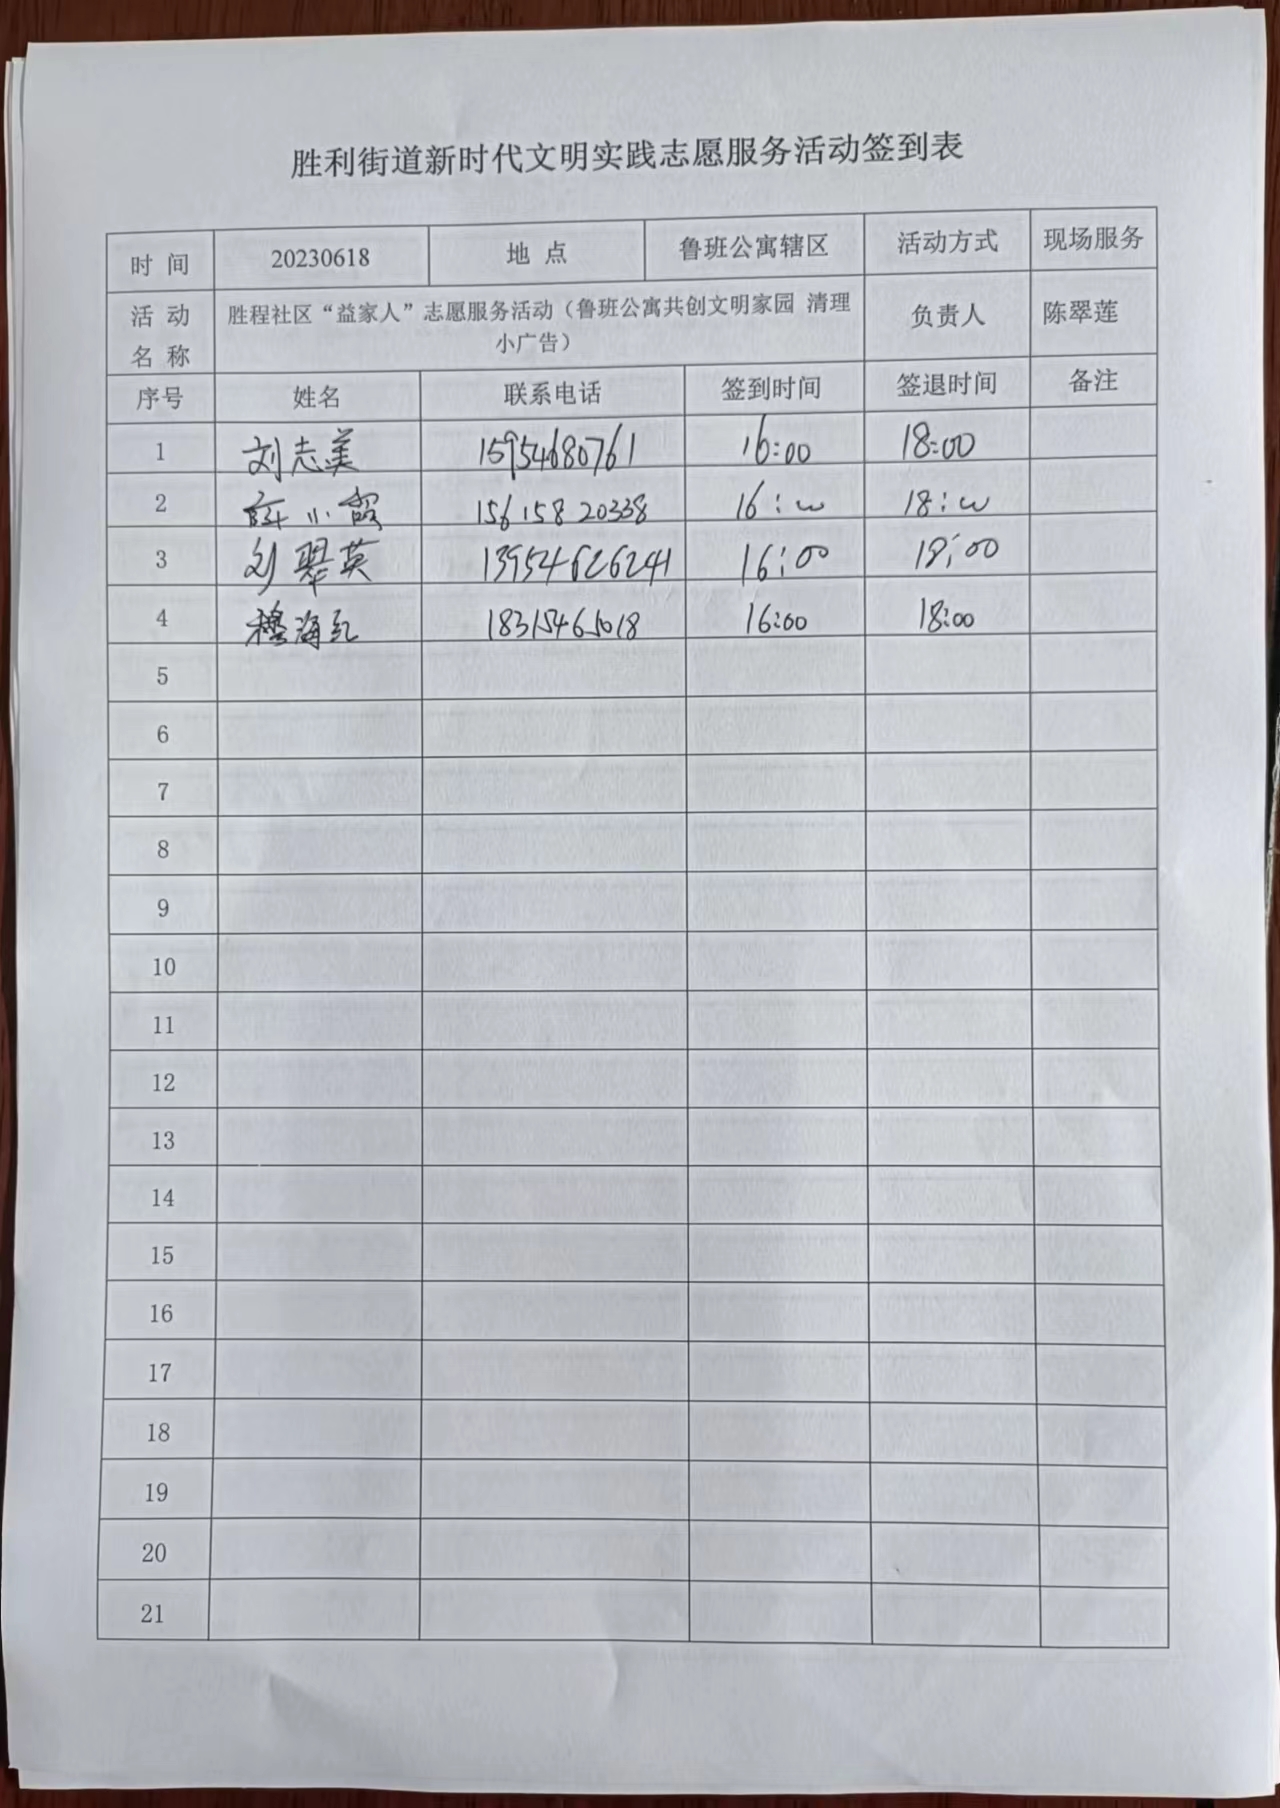 胜利街道新时代文明实践志愿服务活动签到表
时 间 20230618 地 点 鲁班公寓辖区 活动方式 现场服务
活 动 名 称 胜程社区“益家人”志愿服务活动（鲁班公寓共创文明家园 清理
小广告） 负责人 陈翠莲
序号 姓名 联系电话 签到时间 签退时间 备注
1 刘志美 15954680761 16:00 18:00
2 薛小霞 15615820338 16:00 18:00
3 刘翠英 13954626241 16:00 18:00
4 穆海红 18315465018 16:00 18:00
5
6
7
8
9
10
11
12
13
14
15
16
17
18
19
20
21